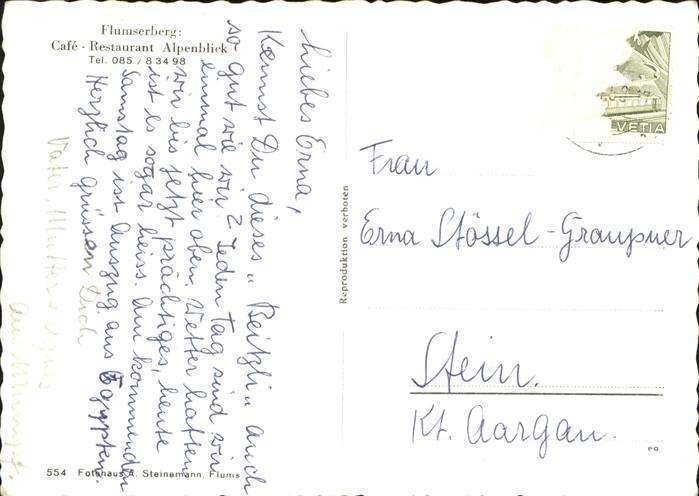 Flumserberg:
Café - Restaurant Alpenblick
Tel. 085 / 8 34 98
Liebes Erna,
Kennst Du dieses „Beizli„ auch
so gut wie wir? Jeden Tag sind wir
einmal hier oben. Wetter hatten
wir bis jetzt prächtiges, heute
ist es sogar heiss. Am kommenden
Samstag ist Auszug aus Egypten.
Herzlich grüssen Dich
Vater, Mutter
554 Fotohaus A. Steinemann, Flums
Reproduktion verboten
HELVETIA
Frau
Erna Stössel-Graupner
Stein.
Kt. Aargau.